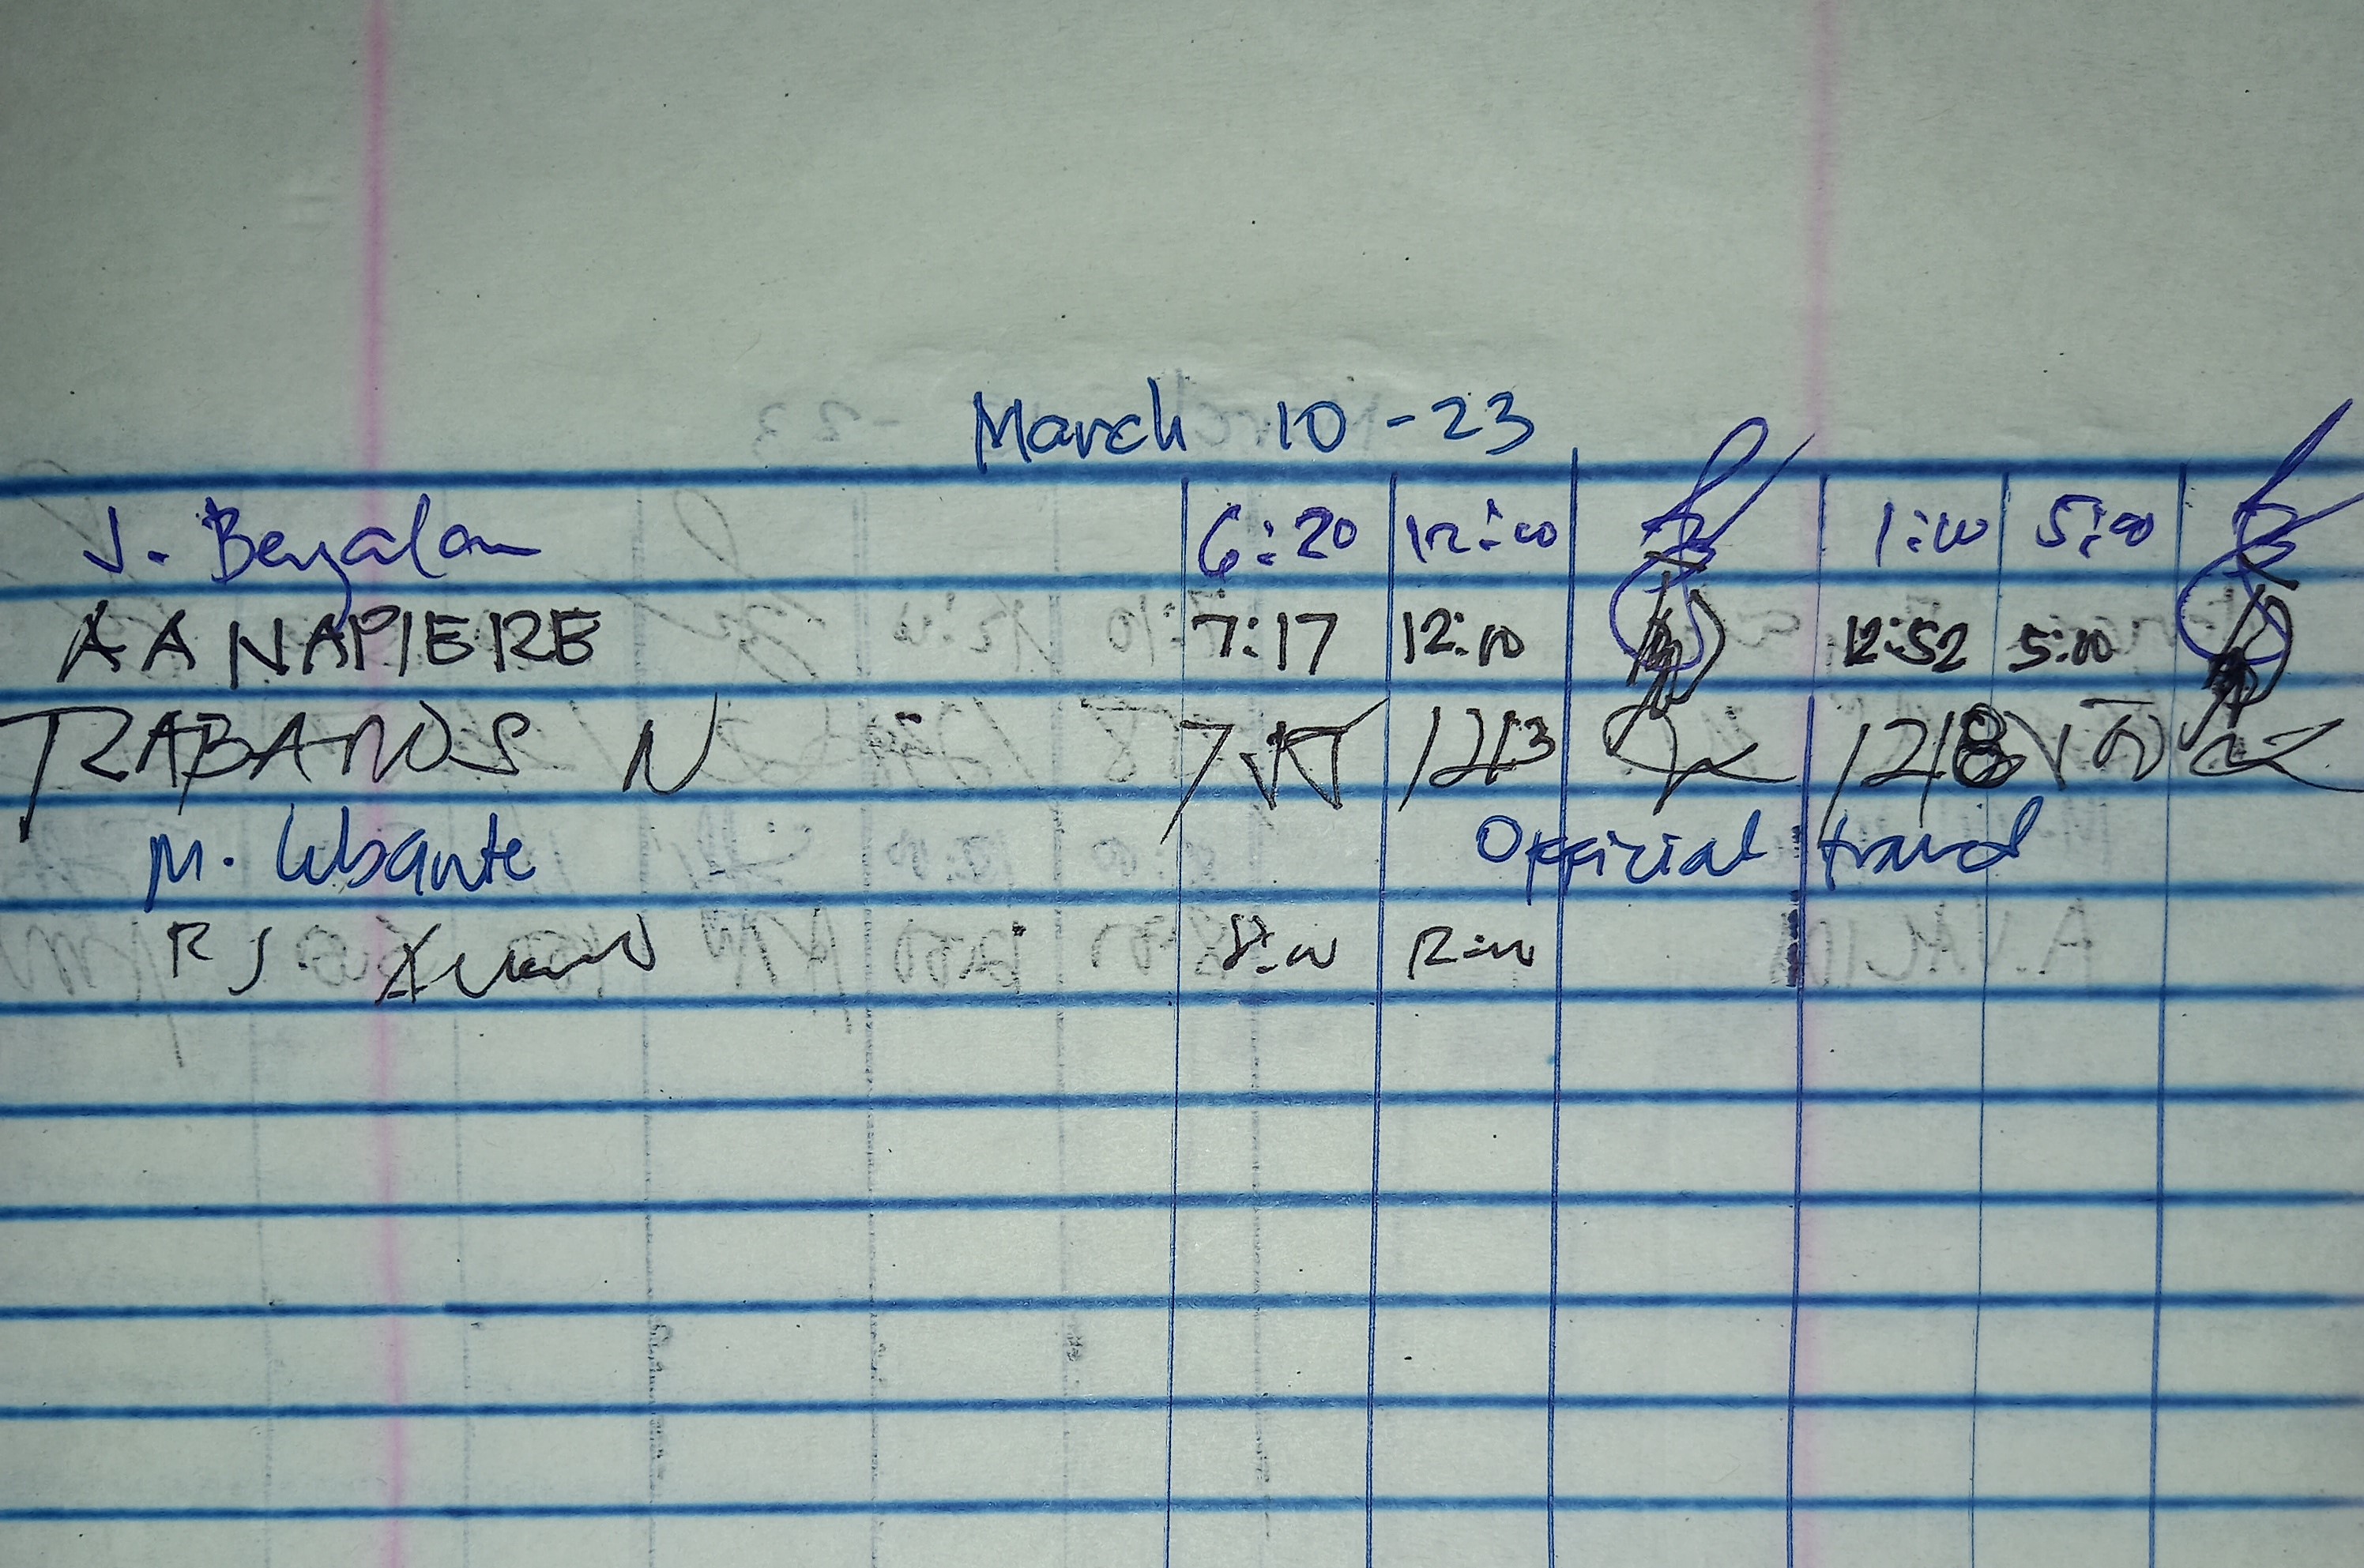 March 10-23
J. Benzalan 6:20 12:00 1:00 5:00
AA NAPIERE 7:17 12:10 12:52 5:10
RABANOS N 1213 1218
M. Official travel
R J. 8:00 12:00